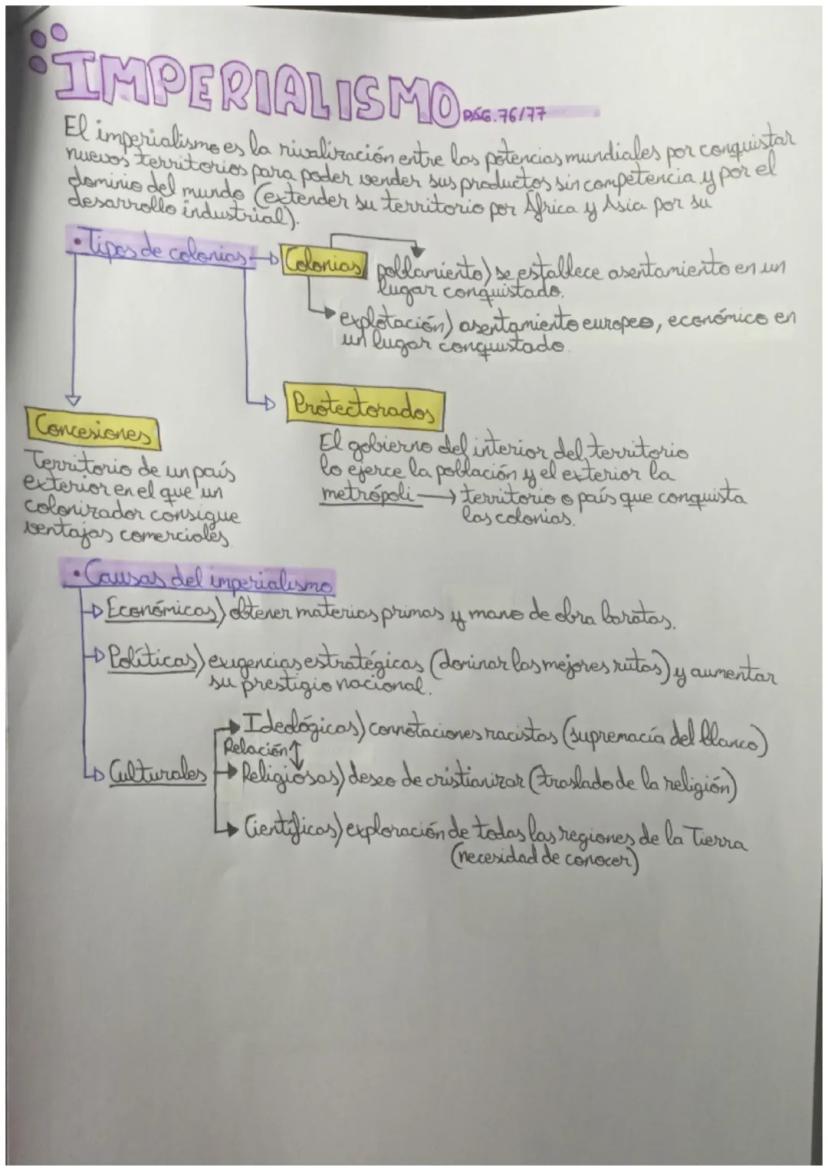 IMPERIALISMO PÁG. 76/77
El imperialismo es la rivalización entre las potencias mundiales por conquistar
nuevos territorios para poder vender sus productos sin competencia y por el
dominio del mundo (extender su territorio por África y Asia por su
desarrollo industrial).
• Tipos de colonias → Colonias
poblamiento) se establece asentamiento en un
lugar conquistado.
explotación) asentamiento europeo, económico en
un lugar conquistado.
Protectorados
El gobierno del interior del territorio
lo ejerce la población y el exterior la
metrópoli → territorio o país que conquista
las colonias.
Concesiones
Territorio de un país
exterior en el que un
colonizador consigue
ventajas comerciales.
• Causas del imperialismo
Económicas) obtener materias primas y mano de obra baratas.
Políticas) exigencias estratégicas (dominar las mejores rutas) y aumentar
su prestigio nacional.
Culturales
Ideológicas) connotaciones racistas (supremacía del blanco)
Relación
Religiosas) deseo de cristianizar (traslado de la religión)
Científicas) exploración de todas las regiones de la Tierra
(necesidad de conocer)